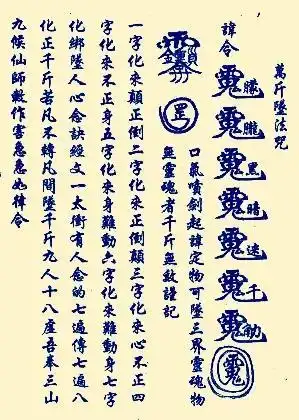 萬斤墜法咒
諱令
朦
朧
黑
暗
速
千
罡
口氣噴劍起諱定物可墜三界靈魂物
無靈魂者千斤無敵謹記
一字化來顛正倒二字化來正倒顛三字化來心不正四
字化來不正身五字化來身難動六字化來難動身七字
化綁墜人心念訣經文一太衝有人念的七遍傳七遍八
化正千斤若凡不轉凡間墜千斤九人十八虛吾奉三山
九候仙師敕作害急急如律令